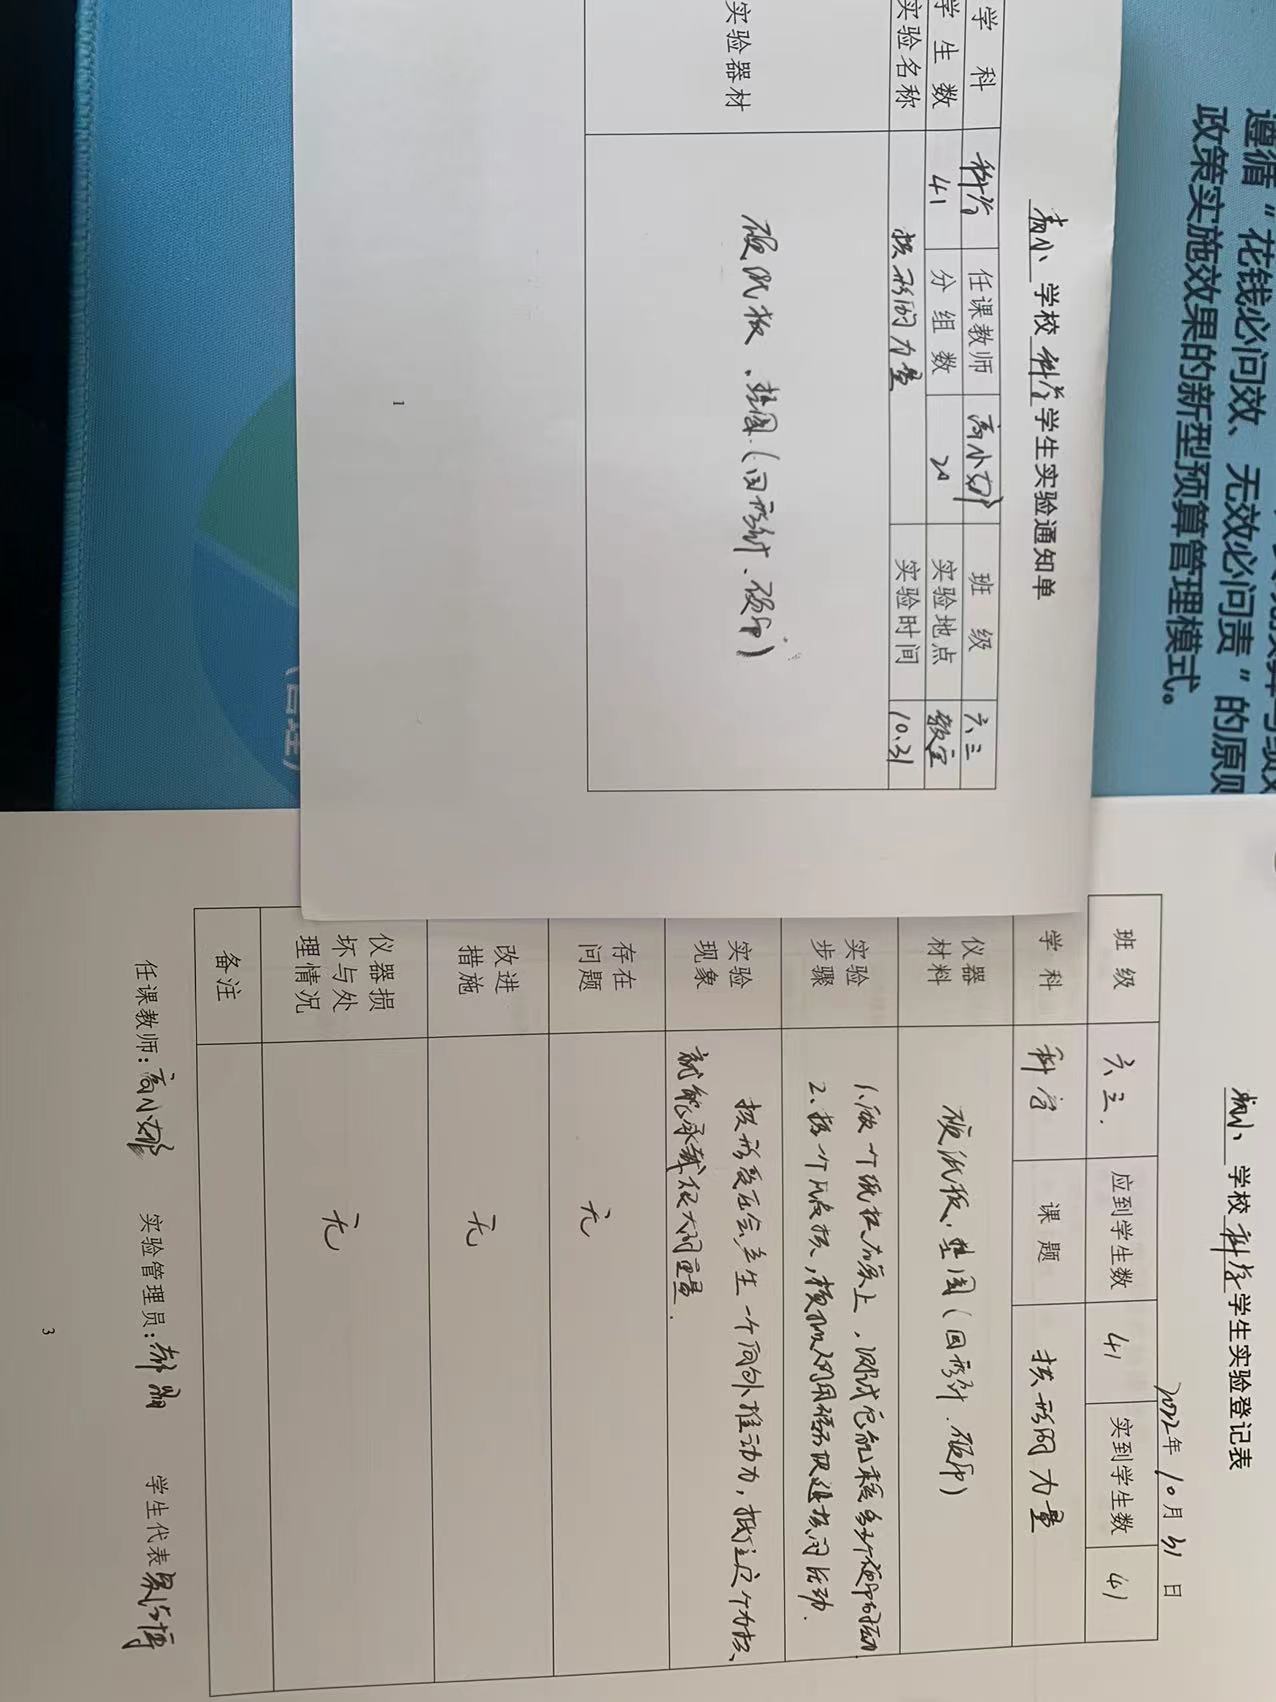 遵循“花钱必问效、无效必问责”的原则
政策实施效果的新型预算管理模式。
学校 科学 学生实验通知单
学科 科学 任课教师 高小娜 班级 六三
学生数 41 分组数 20 实验地点 教室
实验名称 拱形的力量 实验时间 10.31
实验器材 硬纸板、垫圈(回形针、硬币)
1
学校 科学 学生实验登记表
2022年10月31日
班级 六三. 应到学生数 41 实到学生数 41
学科 科学 课题 拱形的力量
仪器材料 硬纸板、垫圈(回形针、硬币)
实验步骤 1、做一个纸拱 放桌上,测试它能承受多少个硬币的
2、搭一个瓜皮拱,
实验现象 拱形受压会产生一个向外推动力,抵住这个力,拱
就能承载很大的重量.
存在问题 无
改进措施 无
仪器损坏与处理情况 无
备注
任课教师:高小娜 实验管理员: 学生代表
3